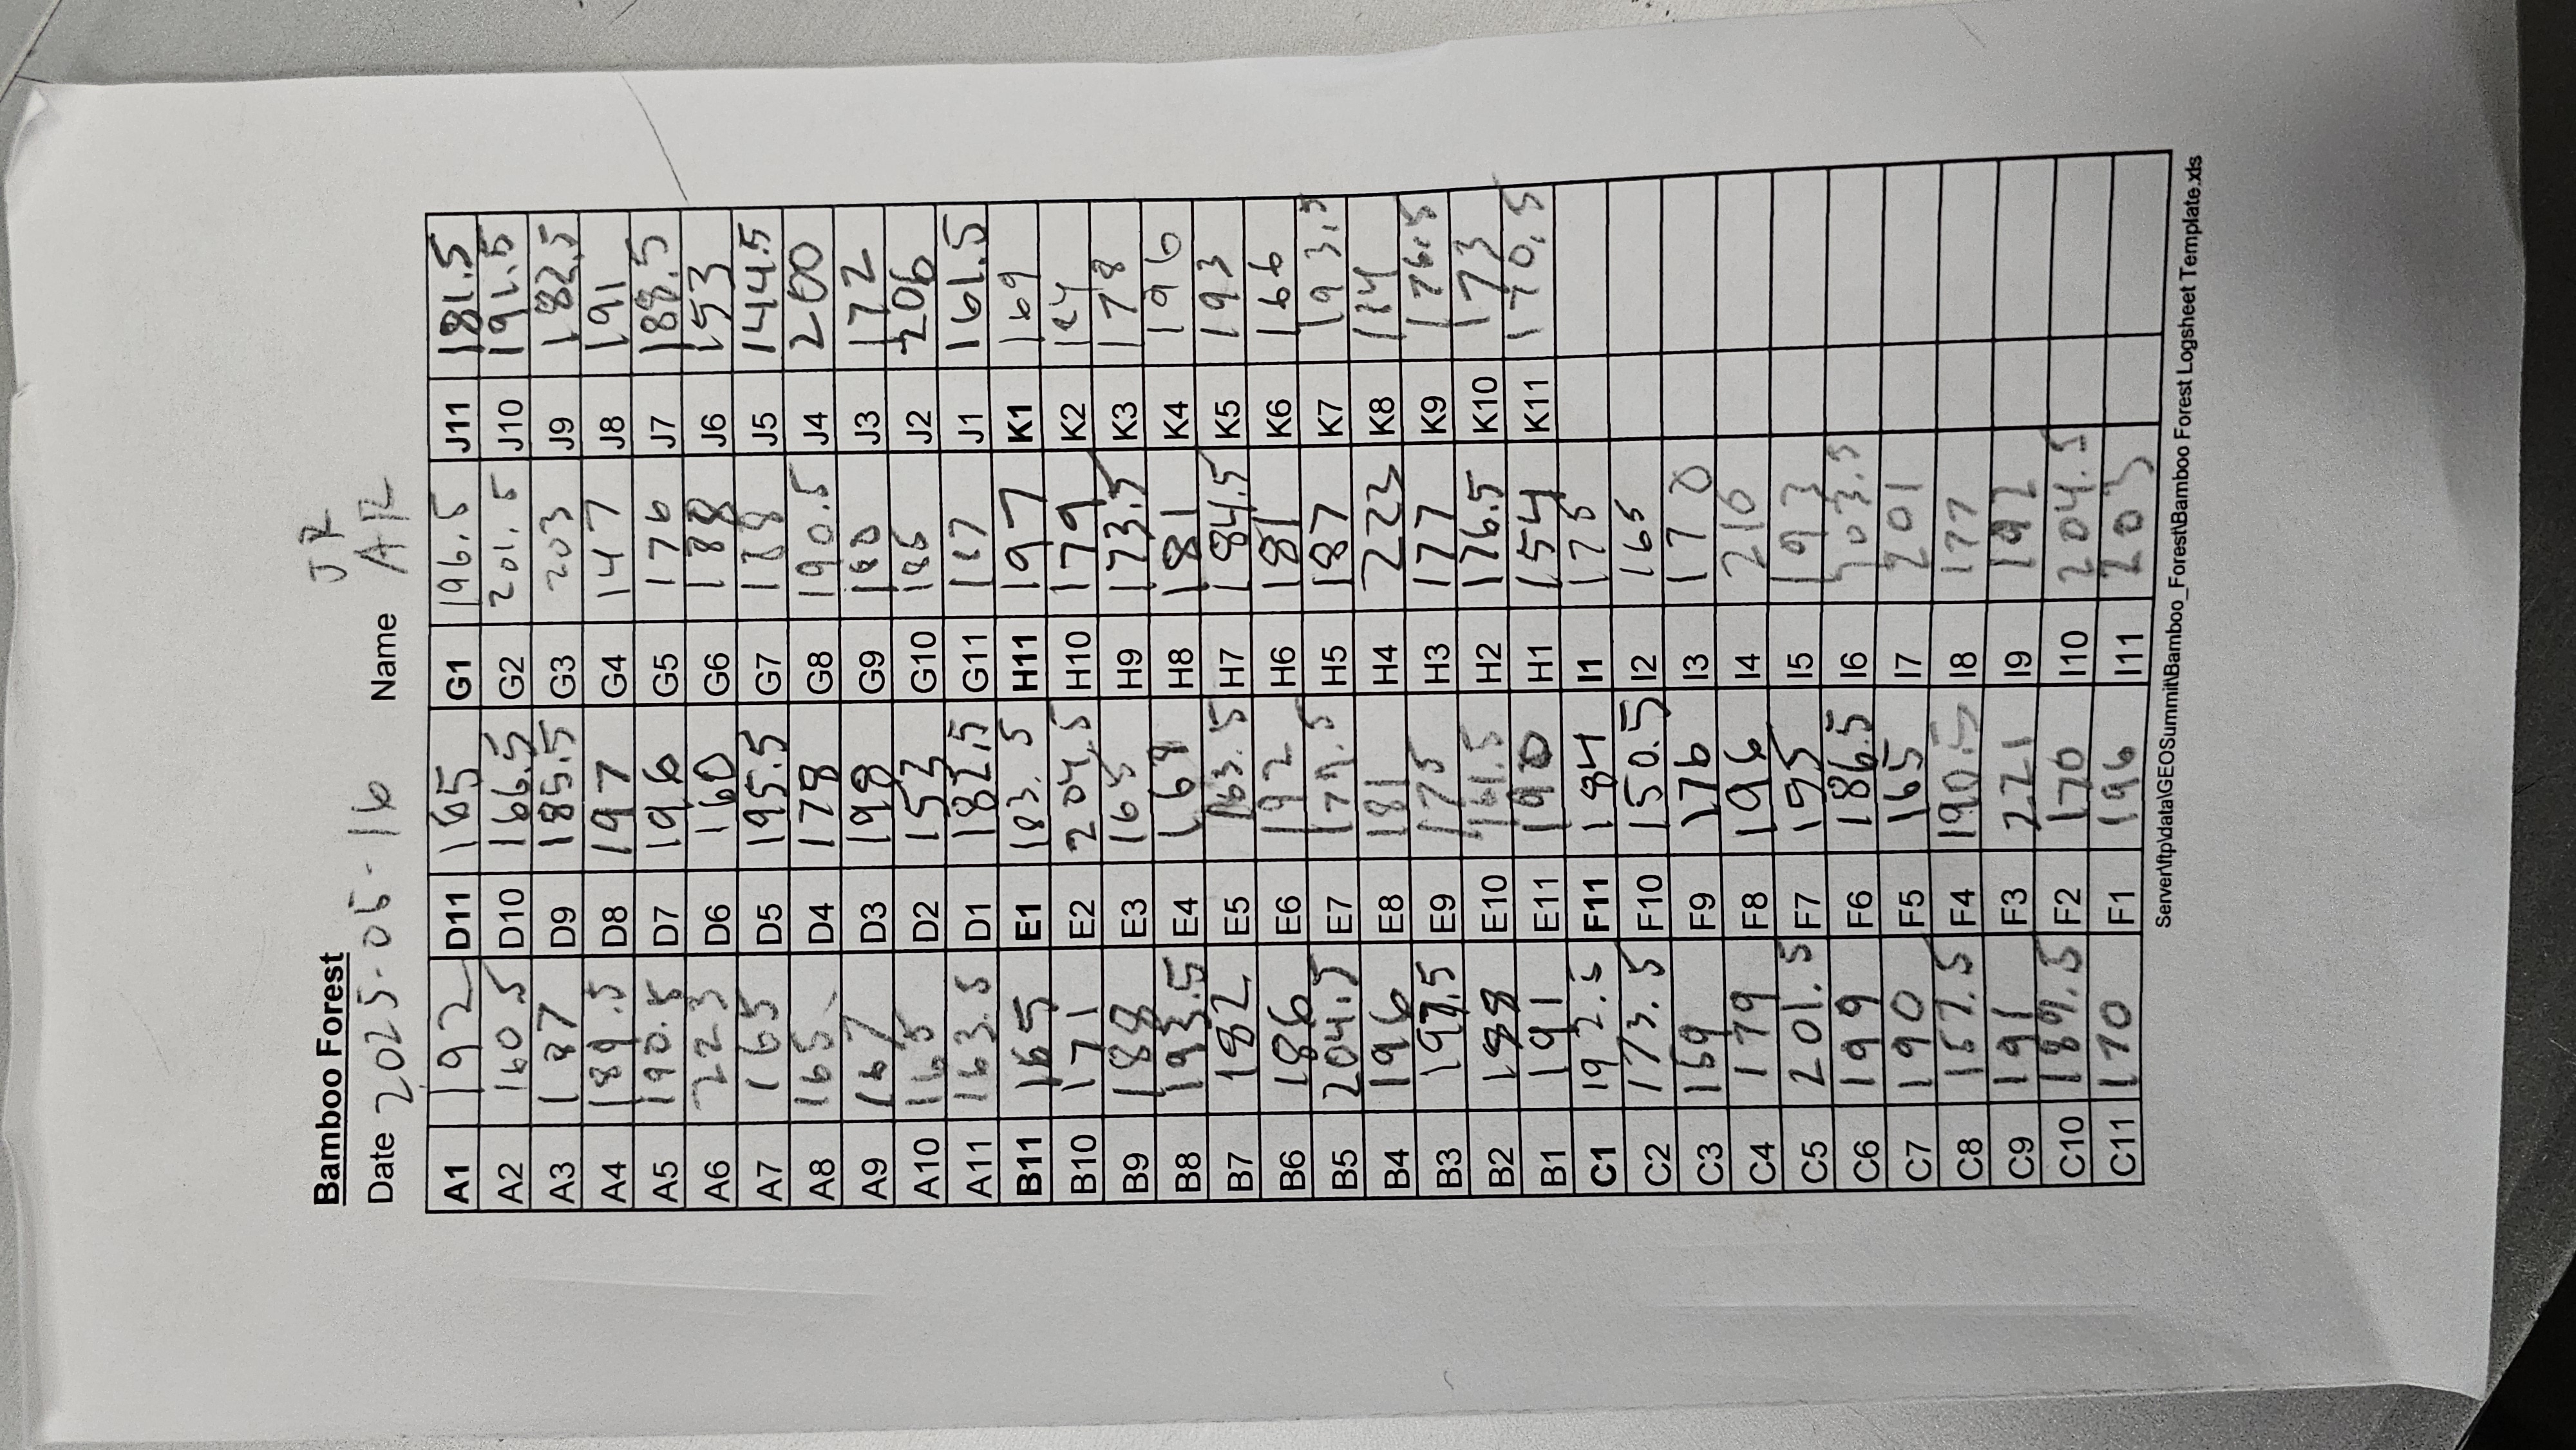 Bamboo Forest
Date 2025-05-16 Name JR
AR
A1 192 D11 165 G1 196.5 J11 181.5
A2 160.5 D10 166.5 G2 201.5 J10 191.5
A3 187 D9 185.5 G3 203 J9 182.5
A4 189.5 D8 197 G4 147 J8 191
A5 190.5 D7 196 G5 176 J7 188.5
A6 223 D6 160 G6 188 J6 153
A7 165 D5 195.5 G7 J5 144.5
A8 165 D4 178 G8 190.5 J4 200
A9 167 D3 198 G9 180 J3 172
A10 165 D2 153 G10 186 J2 206
A11 163.5 D1 182.5 G11 J1 161.5
B11 165 E1 183.5 H11 197 K1 169
B10 171 E2 204.5 H10 179 K2
B9 188 E3 165 H9 173.5 K3 178
B8 193.5 E4 168 H8 181 K4 196
B7 182 E5 163.5 H7 184.5 K5 193
B6 186 E6 192 H6 181 K6 166
B5 204.5 E7 177.5 H5 187 K7 193.5
B4 196 E8 181 H4 223 K8
B3 E9 175 H3 177 K9 176.5
B2 188 E10 161.5 H2 176.5 K10 173
B1 191 E11 190 H1 154 K11 170.5
C1 192.5 F11 184 I1 175
C2 173.5 F10 150.5 I2 165
C3 169 F9 176 I3 170
C4 179 F8 196 I4 216
C5 201.5 F7 195 I5 193
C6 199 F6 186.5 I6 203.5
C7 190 F5 165 I7 201
C8 157.5 F4 190.5 I8 177
C9 191 F3 221 I9 192
C10 189.5 F2 170 I10 204.5
C11 170 F1 196 I11 203
Server\ftp\data\GEOSummit\Bamboo_Forest\Bamboo Forest Logsheet Template.xls